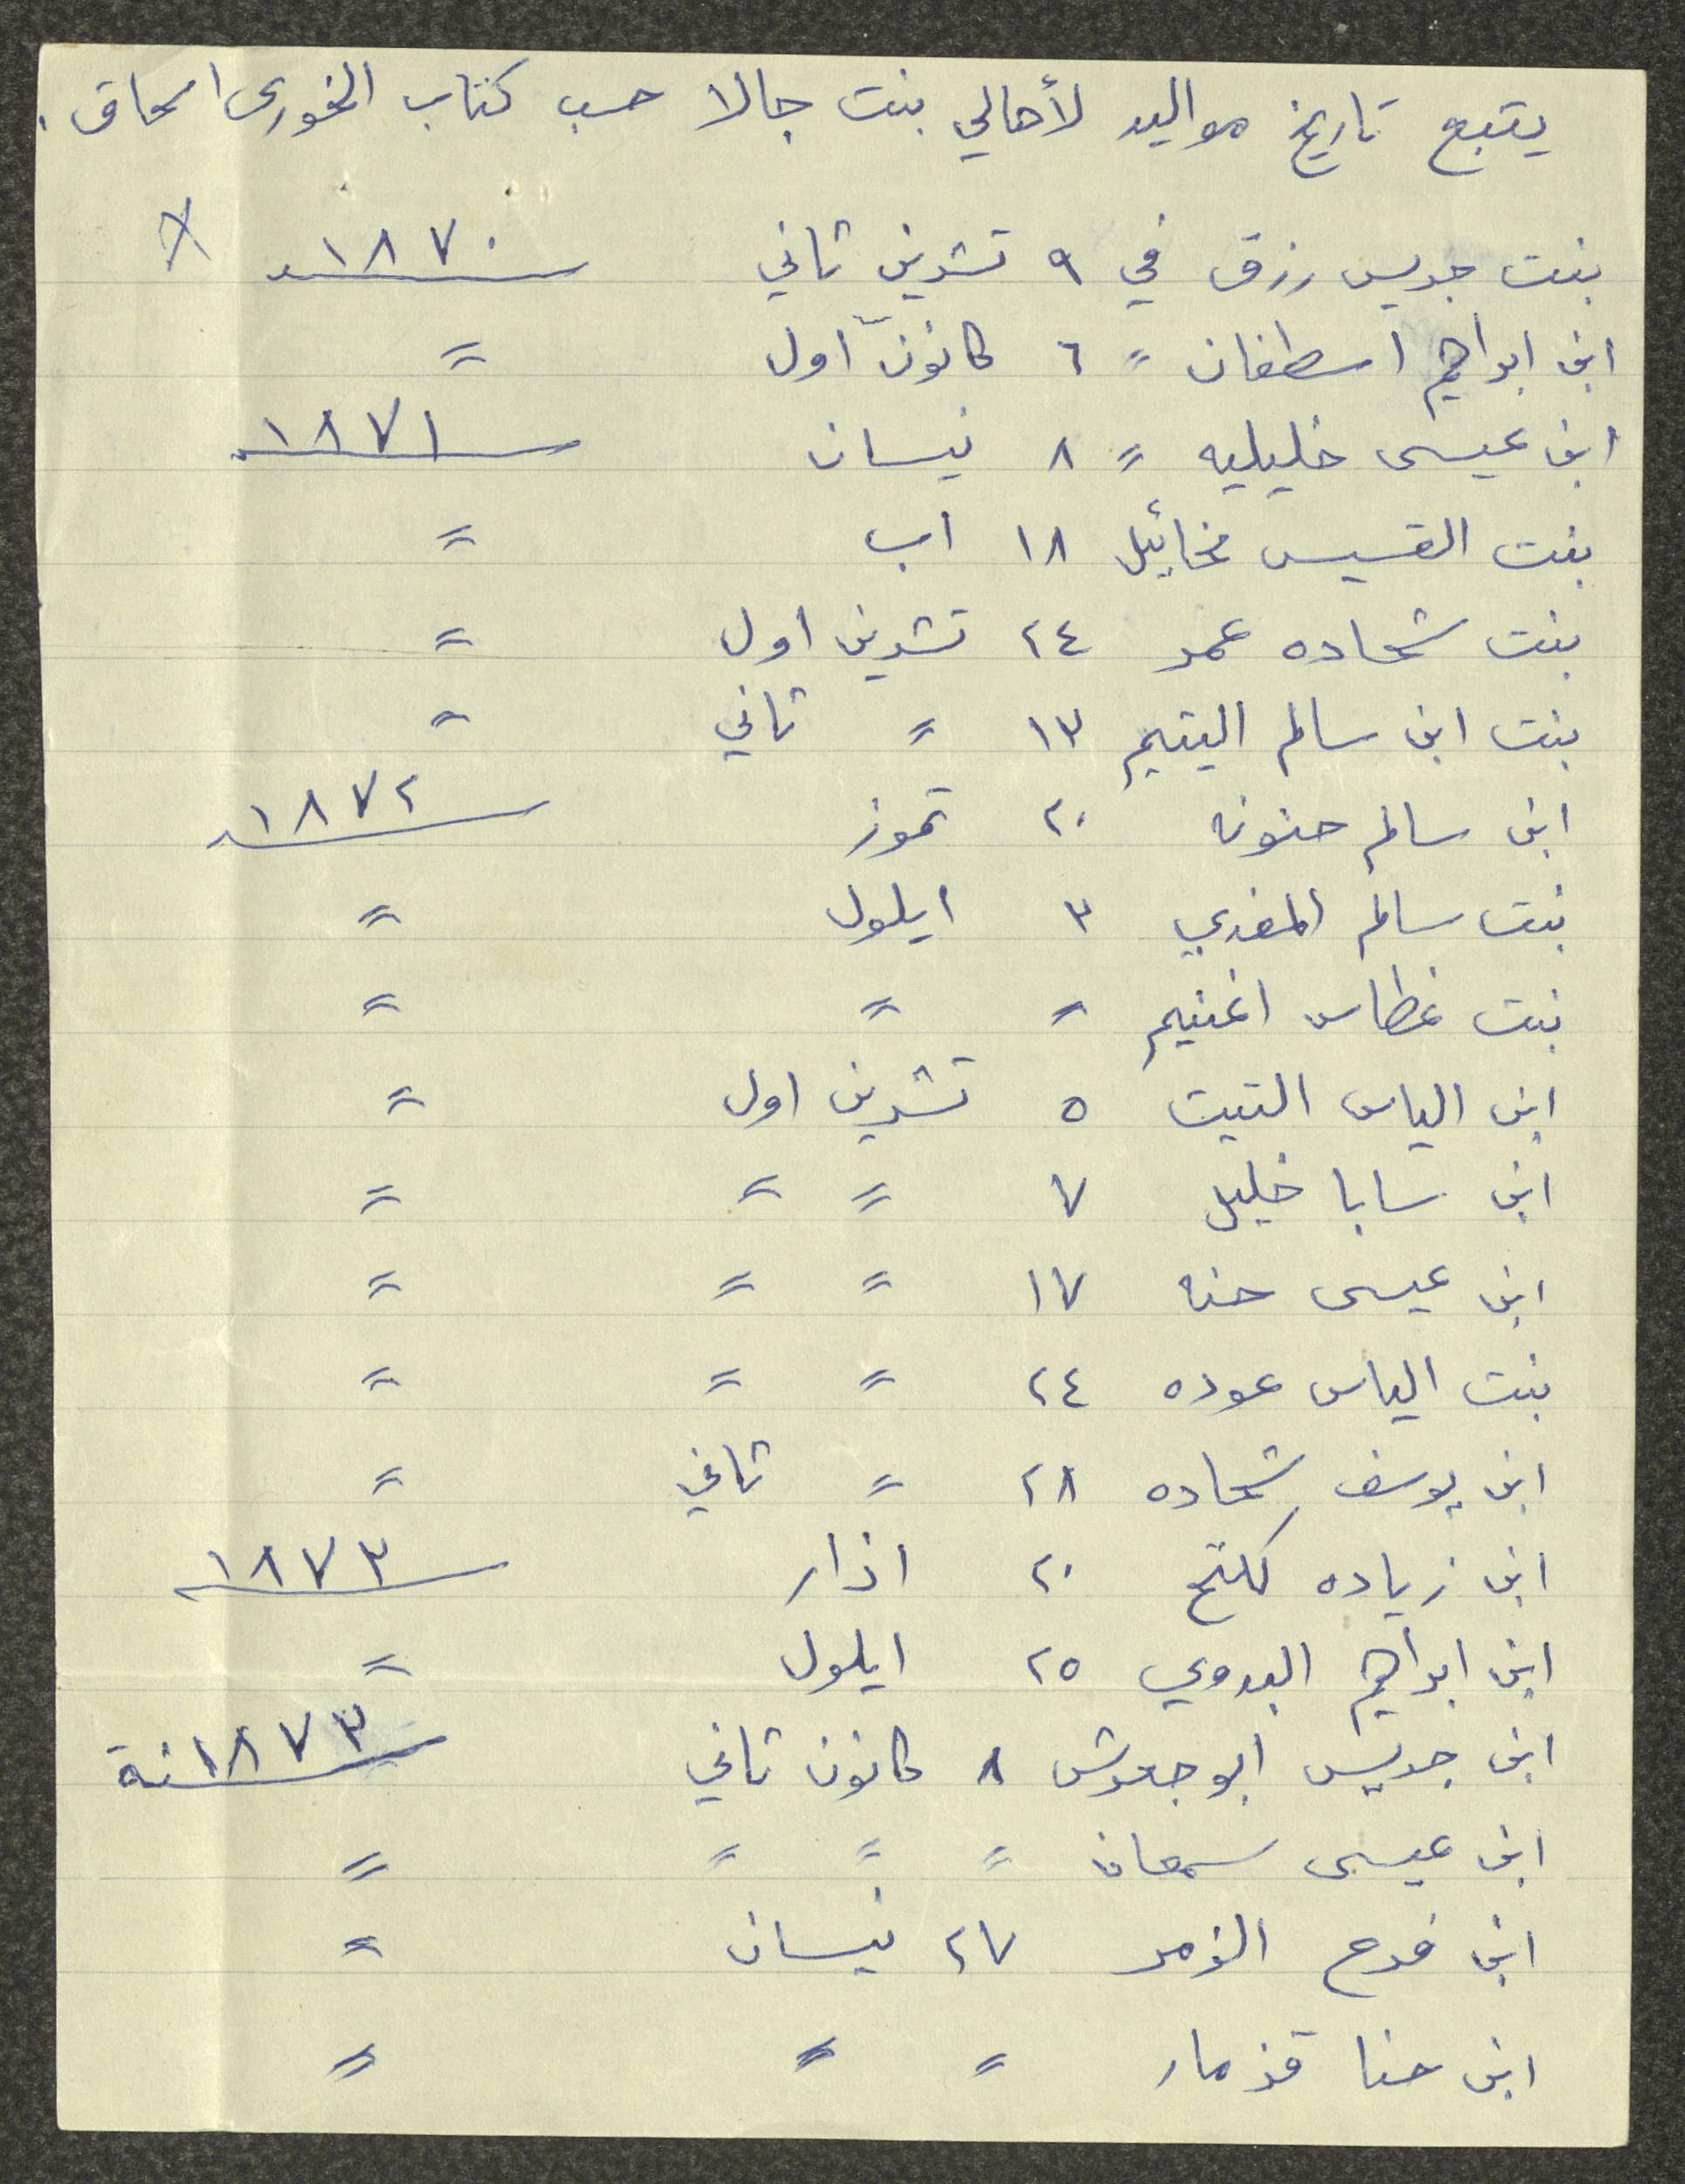 يتبع تاريخ مواليد لأهالي بنت جالا حسب كتاب الخوري اسحاق .
بنت جريس رزق في ٩ تشرين ثاني ١٨٧٠
ابن ابراهيم اسطفان = ٦ كانون اول =
ابن عيسى خليليه = ٨ نيسان ١٨٧١
بنت القسيس مخائيل ١٨ اب =
بنت شحاده عمر ٢٤ تشرين اول =
بنت ابن سالم اليتيم ١٣ = ثاني =
ابن سالم حنونه ٢٠ تموز ١٨٧٢
بنت سالم المغربي ٣ ايلول =
بنت غطاس اغنيم = = =
ابن الياس التيت ٥ تشرين اول =
ابن سابا خليل ٧ = = =
ابن عيسى حنه ١٧ = = =
بنت الياس عوده ٢٤ = = =
ابن يوسف شحاده ٢٨ = ثاني =
ابن زياده كلتح ٢٠ اذار ١٨٧٣
ابن ابراهيم البدوي ٢٥ ايلول =
ابن جريس ابو جعرش ٨ كانون ثاني ١٨٧٣ سنة
ابن عيسى سمعان = = = =
ابن فرح الزمر ٢٧ نيسان =
ابن حنا قزمار = = =